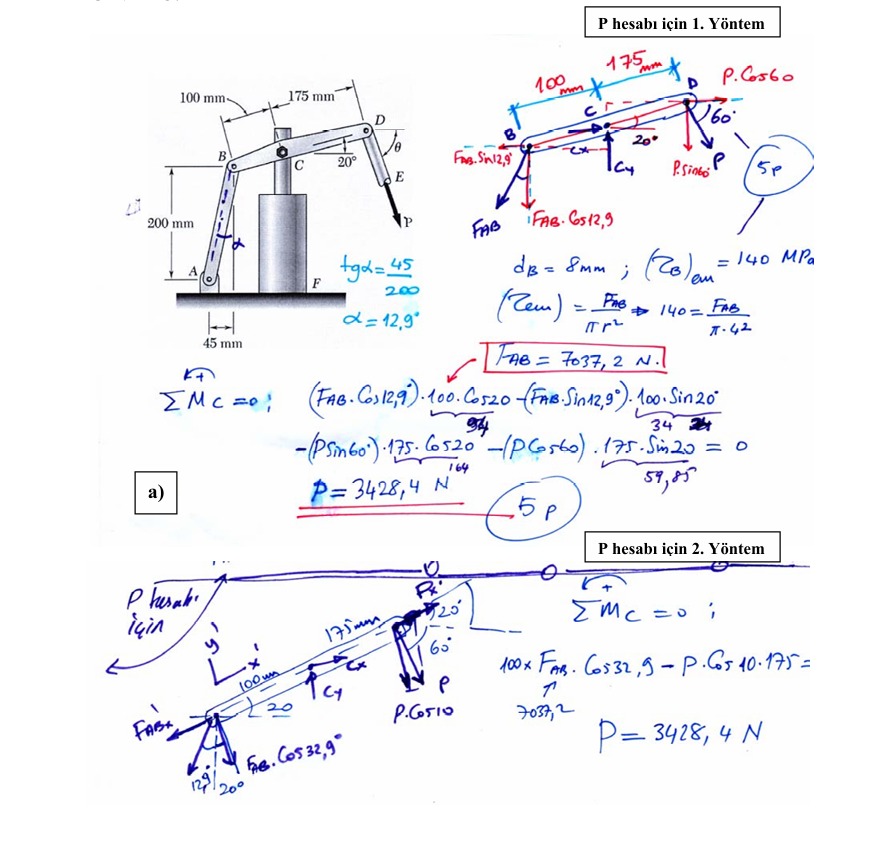 P hesabı için 1. Yöntem
100 mm
175 mm
B
C
D
20°
θ
E
P
200 mm
α
A
F
45 mm
tgα = 45/200
α = 12,9°
100 mm
175 mm
B
C
D
P.Cos60
60°
20°
Cx
Cy
P
P.Sin60
FAB.Sin12,9°
FAB
FAB.Cos12,9
5p
dB = 8mm ; (τB)em = 140 MPa
(τem) = FAB/πr² → 140 = FAB/π.4²
FAB = 7037,2 N.
ΣMC = 0 ; (FAB.Cos12,9°).100.Cos20 - (FAB.Sin12,9°).100.Sin20°
94
34
-(PSin60°).175.Cos20 - (PCos60).175.Sin20 = 0
164
59,85
P = 3428,4 N
5p
a)
P hesabı için 2. Yöntem
P hesabı için
y'
x'
175mm
100mm
Px'
20°
60°
Cx
Cy
P
P.Cos10
20
FABx'
FAB.Cos32,9°
12,9°
20°
ΣMC = 0 ;
100x FAB.Cos32,9 - P.Cos10.175 =
7037,2
P = 3428,4 N